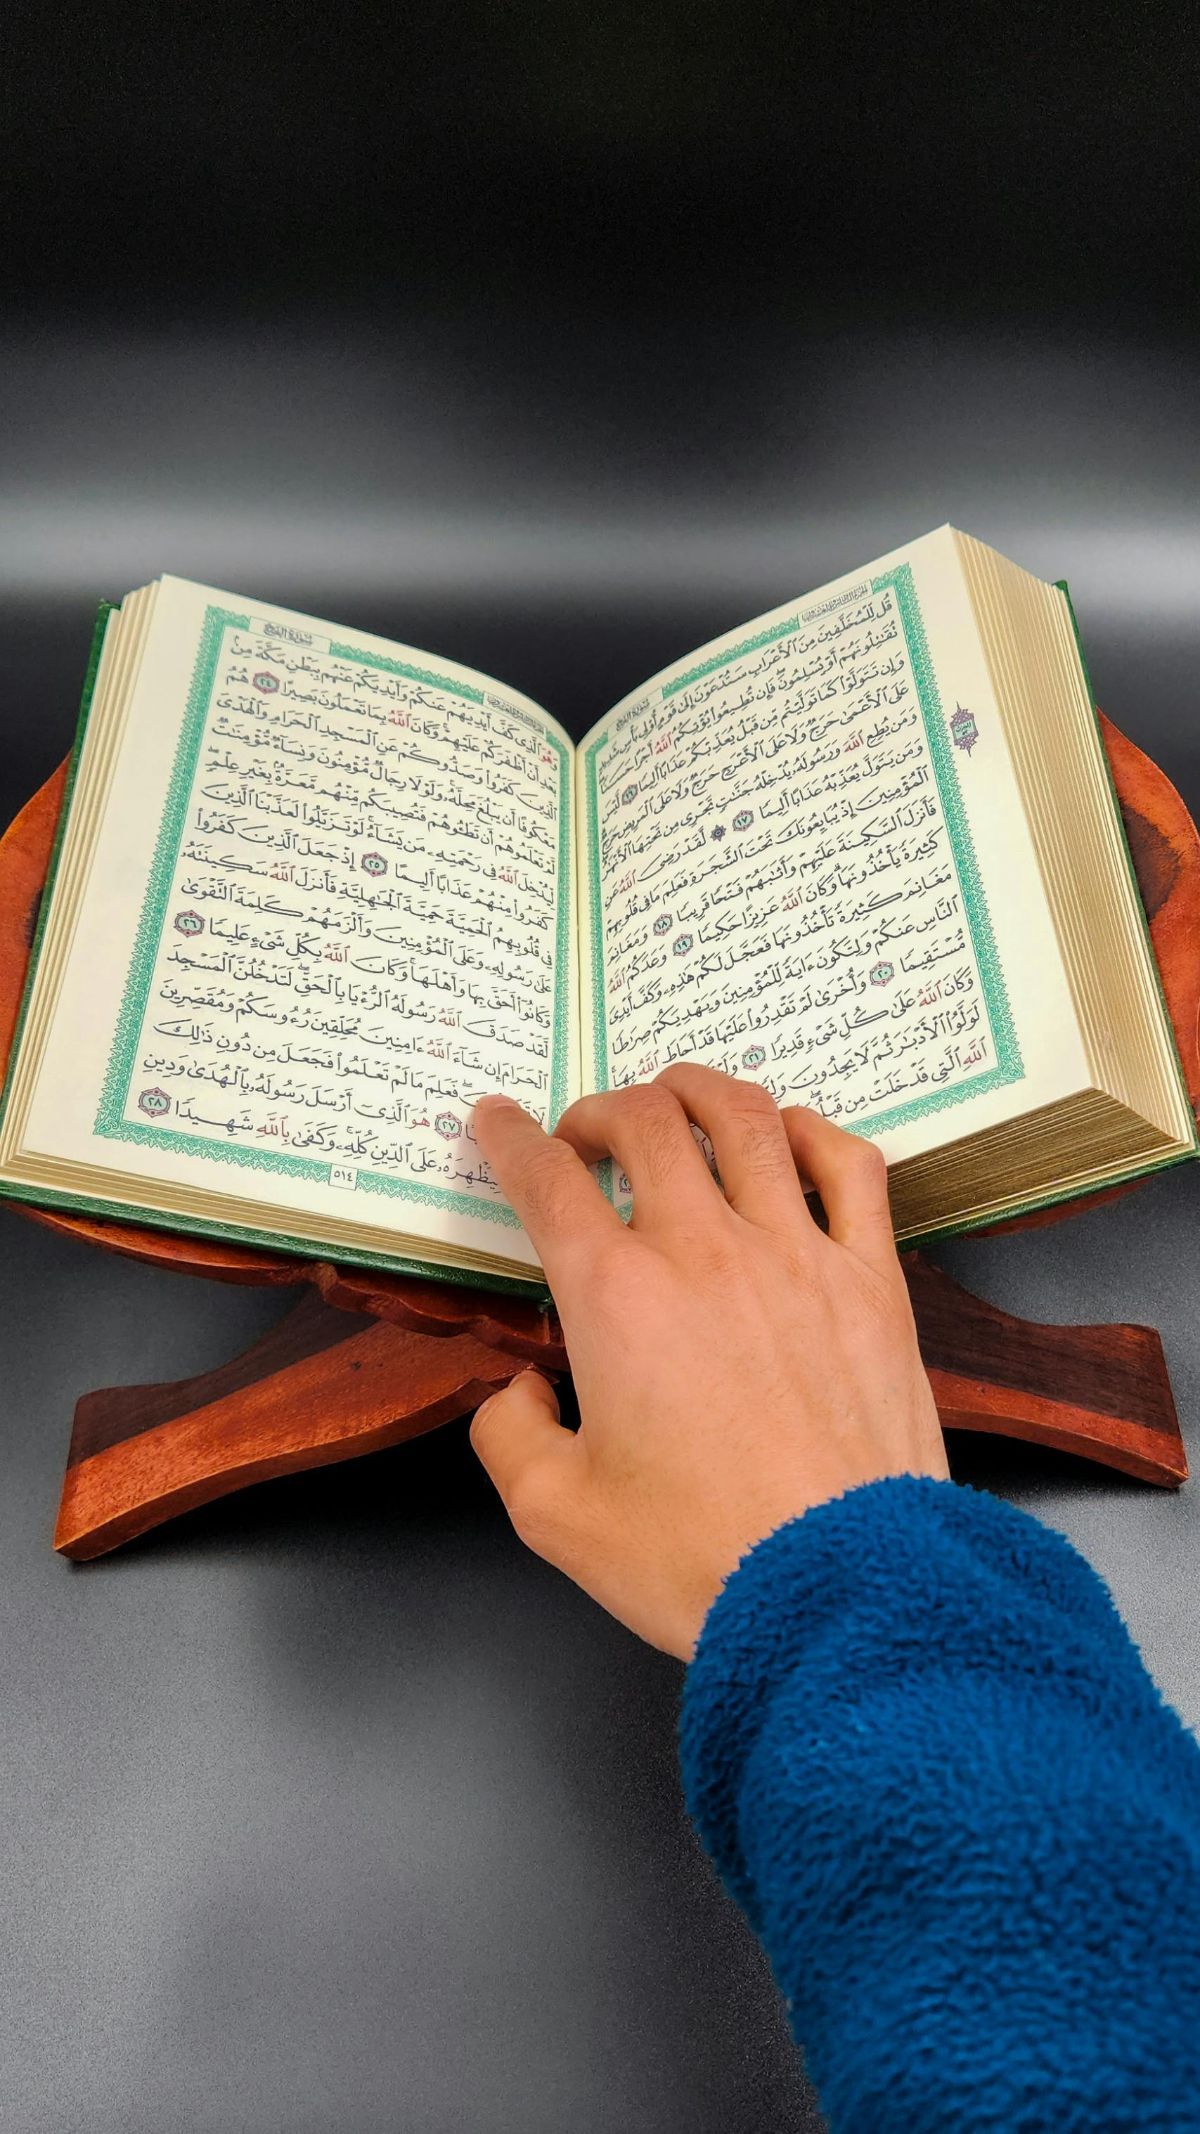 سُورَةُ الفَتْحِ
قُل لِّلْمُخَلَّفِينَ مِنَ ٱلْأَعْرَابِ سَتُدْعَوْنَ إِلَىٰ قَوْمٍ أُو۟لِى بَأْسٍ شَدِيدٍ
تُقَٰتِلُونَهُمْ أَوْ يُسْلِمُونَ ۖ فَإِن تُطِيعُوا۟ يُؤْتِكُمُ ٱللَّهُ أَجْرًا حَسَنًا ۖ
وَإِن تَتَوَلَّوْا۟ كَمَا تَوَلَّيْتُم مِّن قَبْلُ يُعَذِّبْكُمْ عَذَابًا أَلِيمًا ١٦ لَّيْسَ
عَلَى ٱلْأَعْمَىٰ حَرَجٌ وَلَا عَلَى ٱلْأَعْرَجِ حَرَجٌ وَلَا عَلَى ٱلْمَرِيضِ حَرَجٌ ۗ
وَمَن يُطِعِ ٱللَّهَ وَرَسُولَهُۥ يُدْخِلْهُ جَنَّٰتٍ تَجْرِى مِن تَحْتِهَا ٱلْأَنْهَٰرُ ۖ
وَمَن يَتَوَلَّ يُعَذِّبْهُ عَذَابًا أَلِيمًا ١٧ ۞ لَّقَدْ رَضِىَ ٱللَّهُ عَنِ
ٱلْمُؤْمِنِينَ إِذْ يُبَايِعُونَكَ تَحْتَ ٱلشَّجَرَةِ فَعَلِمَ مَا فِى قُلُوبِهِمْ
فَأَنزَلَ ٱلسَّكِينَةَ عَلَيْهِمْ وَأَثَٰبَهُمْ فَتْحًا قَرِيبًا ١٨ وَمَغَانِمَ
كَثِيرَةً يَأْخُذُونَهَا ۗ وَكَانَ ٱللَّهُ عَزِيزًا حَكِيمًا ١٩ وَعَدَكُمُ ٱللَّهُ
مَغَانِمَ كَثِيرَةً تَأْخُذُونَهَا فَعَجَّلَ لَكُمْ هَٰذِهِۦ وَكَفَّ أَيْدِىَ
ٱلنَّاسِ عَنكُمْ وَلِتَكُونَ ءَايَةً لِّلْمُؤْمِنِينَ وَيَهْدِيَكُمْ صِرَٰطًا
مُّسْتَقِيمًا ٢٠ وَأُخْرَىٰ لَمْ تَقْدِرُوا۟ عَلَيْهَا قَدْ أَحَاطَ ٱللَّهُ بِهَا ۚ
وَكَانَ ٱللَّهُ عَلَىٰ كُلِّ شَىْءٍ قَدِيرًا ٢١
لَوَلَّوُا۟ ٱلْأَدْبَٰرَ ثُمَّ لَا يَجِدُونَ
ٱللَّهِ ٱلَّتِى قَدْ خَلَتْ مِن قَبْلُ
سُورَةُ الفَتْحِ
وَهُوَ ٱلَّذِى كَفَّ أَيْدِيَهُمْ عَنكُمْ وَأَيْدِيَكُمْ عَنْهُم بِبَطْنِ مَكَّةَ مِنۢ
بَعْدِ أَنْ أَظْفَرَكُمْ عَلَيْهِمْ ۚ وَكَانَ ٱللَّهُ بِمَا تَعْمَلُونَ بَصِيرًا ٢٤ هُمُ
ٱلَّذِينَ كَفَرُوا۟ وَصَدُّوكُمْ عَنِ ٱلْمَسْجِدِ ٱلْحَرَامِ وَٱلْهَدْىَ
مَعْكُوفًا أَن يَبْلُغَ مَحِلَّهُۥ ۚ وَلَوْلَا رِجَالٌ مُّؤْمِنُونَ وَنِسَآءٌ مُّؤْمِنَٰتٌ
لَّمْ تَعْلَمُوهُمْ أَن تَطَـُٔوهُمْ فَتُصِيبَكُم مِّنْهُم مَّعَرَّةٌۢ بِغَيْرِ عِلْمٍ ۖ
لِّيُدْخِلَ ٱللَّهُ فِى رَحْمَتِهِۦ مَن يَشَآءُ ۚ لَوْ تَزَيَّلُوا۟ لَعَذَّبْنَا ٱلَّذِينَ
كَفَرُوا۟ مِنْهُمْ عَذَابًا أَلِيمًا ٢٥ إِذْ جَعَلَ ٱلَّذِينَ كَفَرُوا۟
فِى قُلُوبِهِمُ ٱلْحَمِيَّةَ حَمِيَّةَ ٱلْجَٰهِلِيَّةِ فَأَنزَلَ ٱللَّهُ سَكِينَتَهُۥ
عَلَىٰ رَسُولِهِۦ وَعَلَى ٱلْمُؤْمِنِينَ وَأَلْزَمَهُمْ كَلِمَةَ ٱلتَّقْوَىٰ
وَكَانُوٓا۟ أَحَقَّ بِهَا وَأَهْلَهَا ۚ وَكَانَ ٱللَّهُ بِكُلِّ شَىْءٍ عَلِيمًا ٢٦
لَّقَدْ صَدَقَ ٱللَّهُ رَسُولَهُ ٱلرُّءْيَا بِٱلْحَقِّ ۖ لَتَدْخُلُنَّ ٱلْمَسْجِدَ
ٱلْحَرَامَ إِن شَآءَ ٱللَّهُ ءَامِنِينَ مُحَلِّقِينَ رُءُوسَكُمْ وَمُقَصِّرِينَ
لَا ۖ فَعَلِمَ مَا لَمْ تَعْلَمُوا۟ فَجَعَلَ مِن دُونِ ذَٰلِكَ
٢٧ هُوَ ٱلَّذِىٓ أَرْسَلَ رَسُولَهُۥ بِٱلْهُدَىٰ وَدِينِ
لِيُظْهِرَهُۥ عَلَى ٱلدِّينِ كُلِّهِۦ ۚ وَكَفَىٰ بِٱللَّهِ شَهِيدًا ٢٨
٥١٤